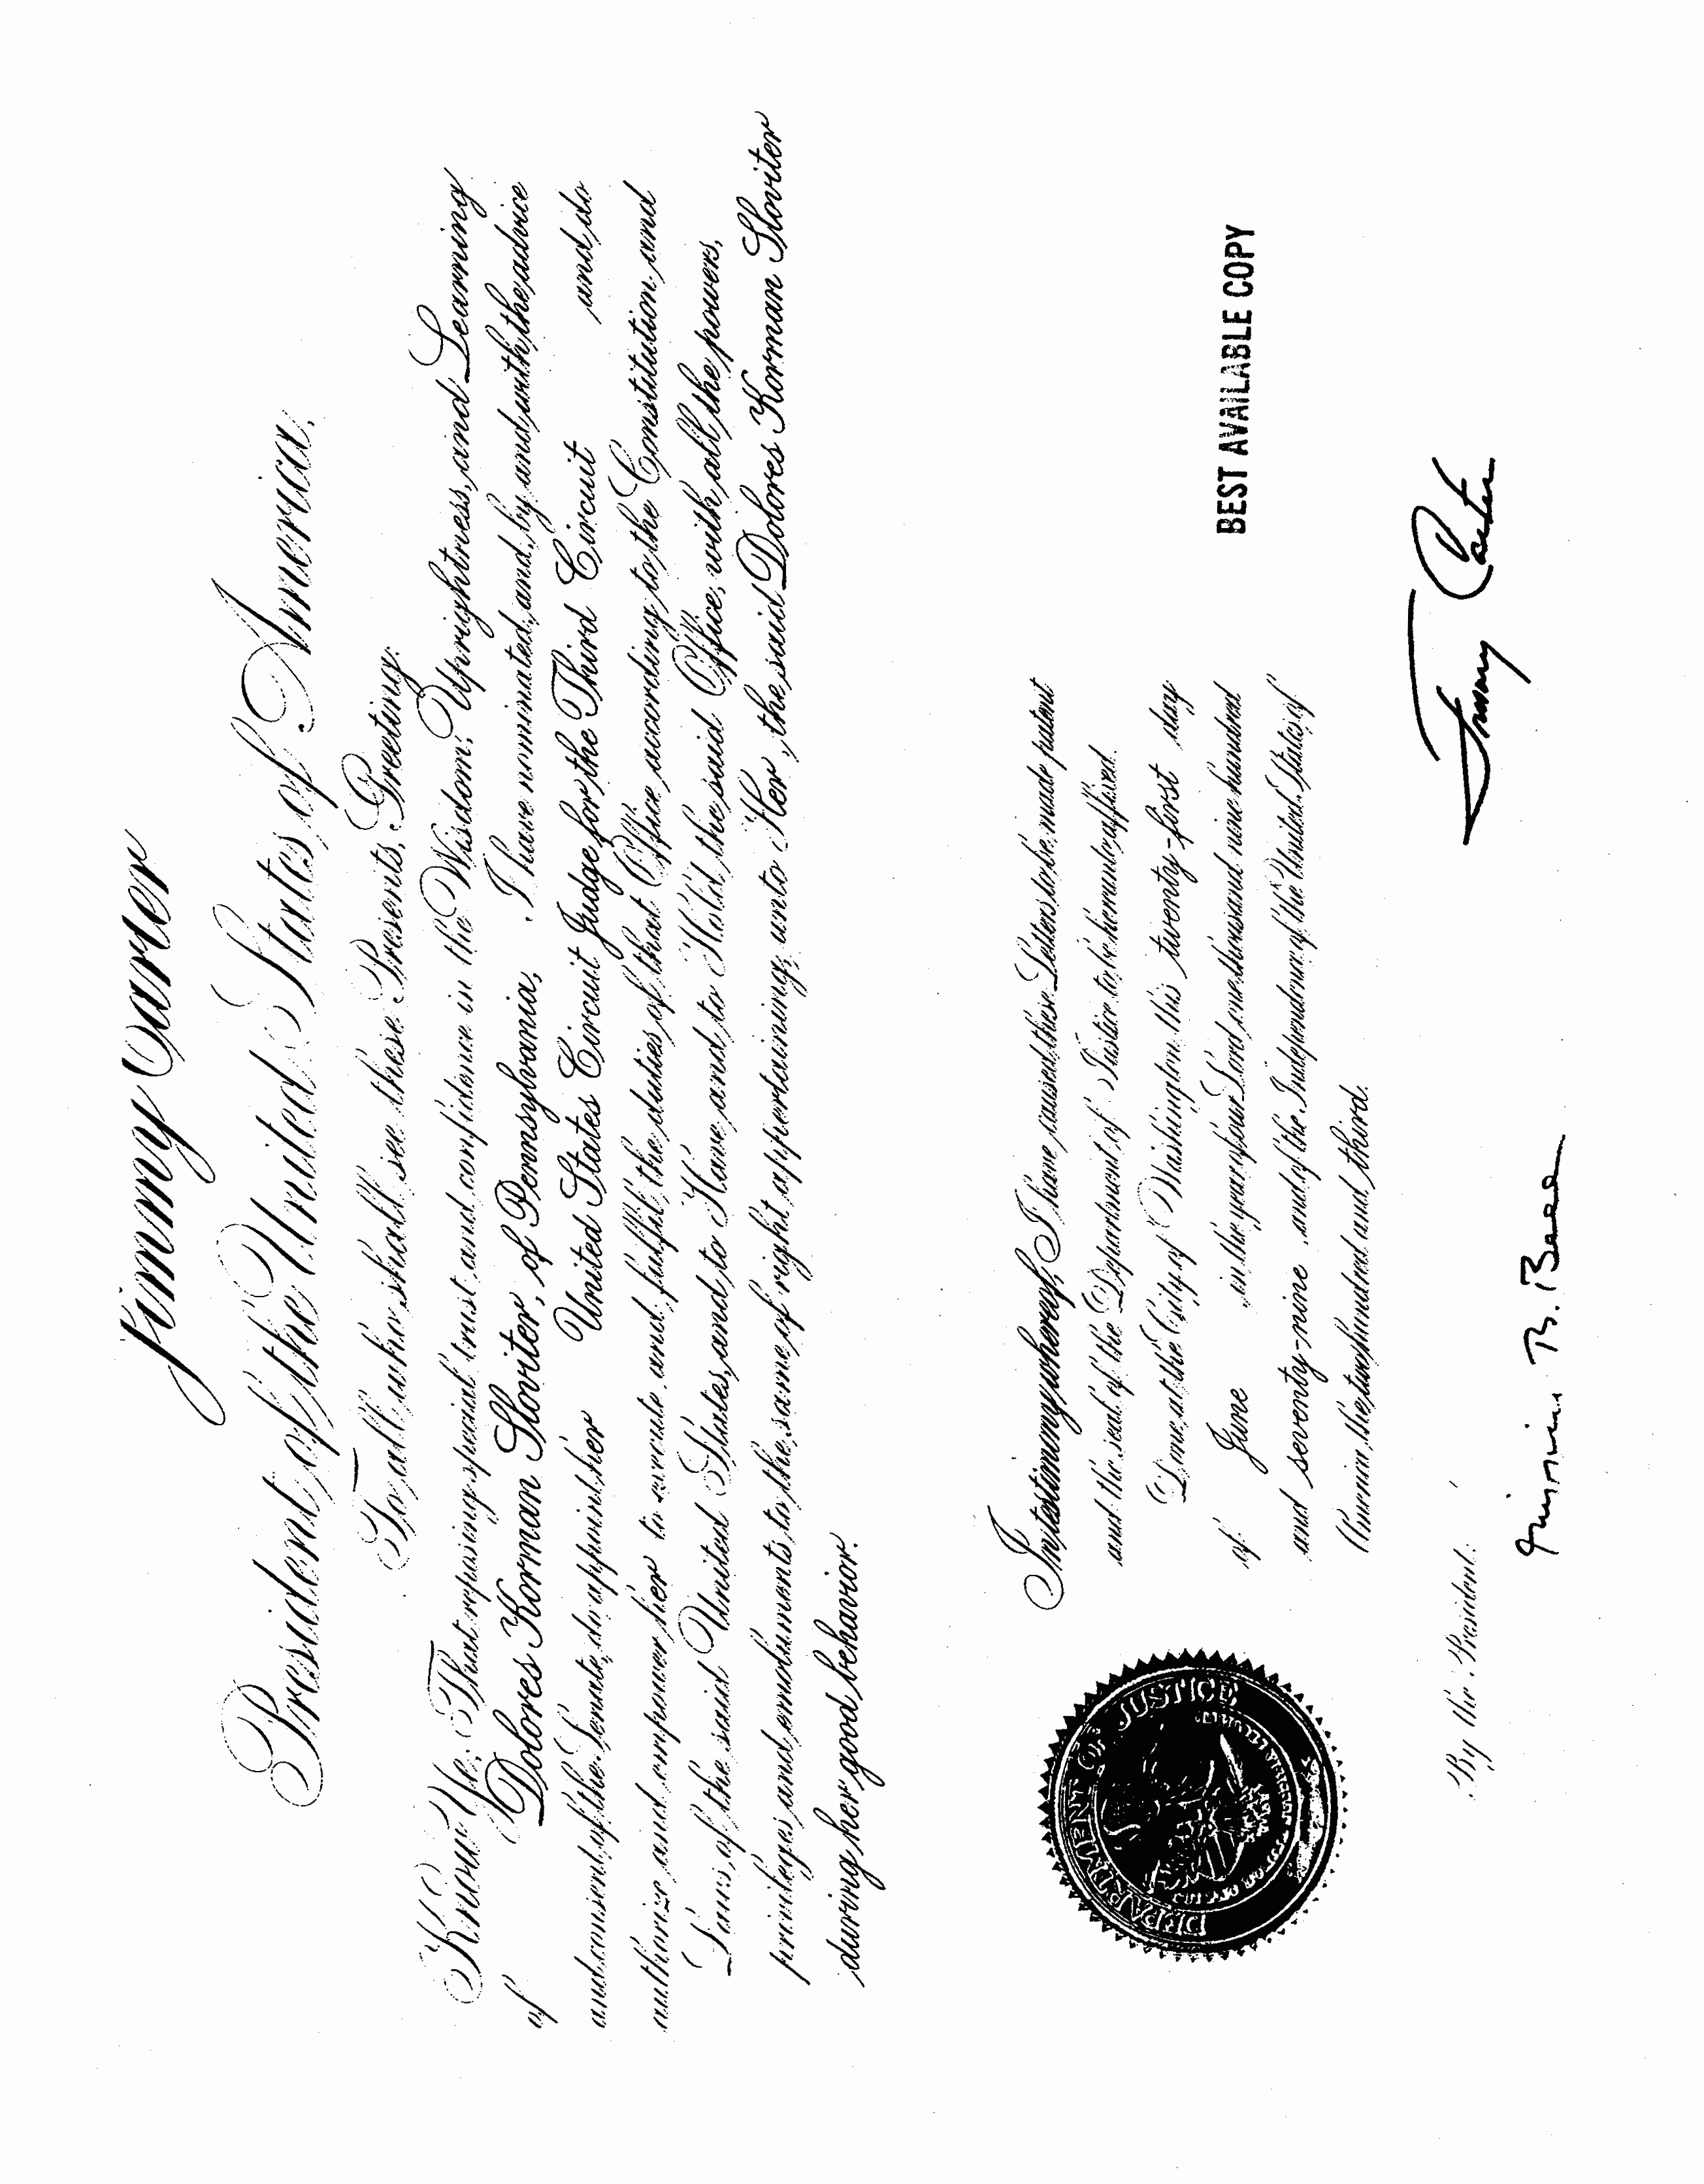 Jimmy Carter
President of the United States of America.
To all who shall see these Presents, Greeting:
Know Ye; That reposing special trust and confidence in the Wisdom, Uprightness, and Learning
of Dolores Korman Sloviter, of Pennsylvania, I have nominated, and, by and with the advice
and consent of the Senate, do appoint her United States Circuit Judge for the Third Circuit and do
authorize and empower her to execute and fulfil the duties of that Office according to the Constitution and
Laws of the said United States, and to Have and to Hold the said Office, with all the powers,
privileges and emoluments to the same of right appertaining, unto Her, the said Dolores Korman Sloviter
during her good behavior.
In testimony whereof, I have caused these Letters to be made patent
and the seal of the Department of Justice to be hereunto affixed.
Done at the City of Washington this twenty-first day
of June in the year of our Lord one thousand nine hundred
and seventy-nine, and of the Independence of the United States of
America the two hundred and third.
BEST AVAILABLE COPY
DEPARTMENT OF JUSTICE
Jimmy Carter
By the President: